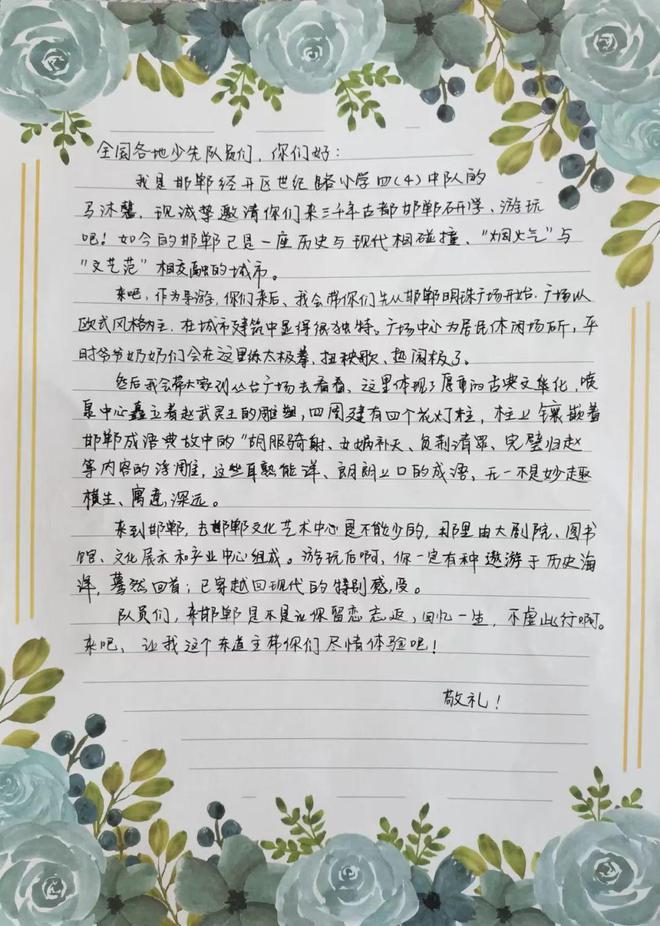 全国各地少先队员们，你们好：
我是邯郸经开区世纪路小学四（4）中队的
马沐馨，现诚挚邀请你们来三千年古都邯郸研学、游玩
吧！如今的邯郸已是一座历史与现代相碰撞、“烟火气”与
“文艺范”相交融的城市。
来吧，作为导游，你们来后、我会带你们先从邯郸明珠广场开始，广场以
欧式风格为主，在城市建筑中显得很独特。广场中心为居民休闲场所，平
时爷爷奶奶们会在这里练太极拳、扭秧歌、热闹极了。
然后我会带大家到丛台广场去看看、这里体现了厚重的古典文化，喷
泉中心矗立着赵武灵王的雕塑，四周建有四个花灯柱，柱上镶嵌着
邯郸成语典故中的“胡服骑射、女娲补天、负荆请罪、完璧归赵
等内容的浮雕，这些耳熟能详、朗朗上口的成语，无一不是妙趣
横生、寓意深远。
来到邯郸，去邯郸文化艺术中心是不能少的，那里由大剧院、图书
馆、文化展示和产业中心组成。游玩后啊，你一定有种遨游于历史海
洋，蓦然回首；已穿越回现代的特别感受。
队员们，来邯郸是不是让你留恋忘返，回忆一生，不虚此行啊。
来吧、让我这个东道主带你们尽情体验吧！
敬礼！